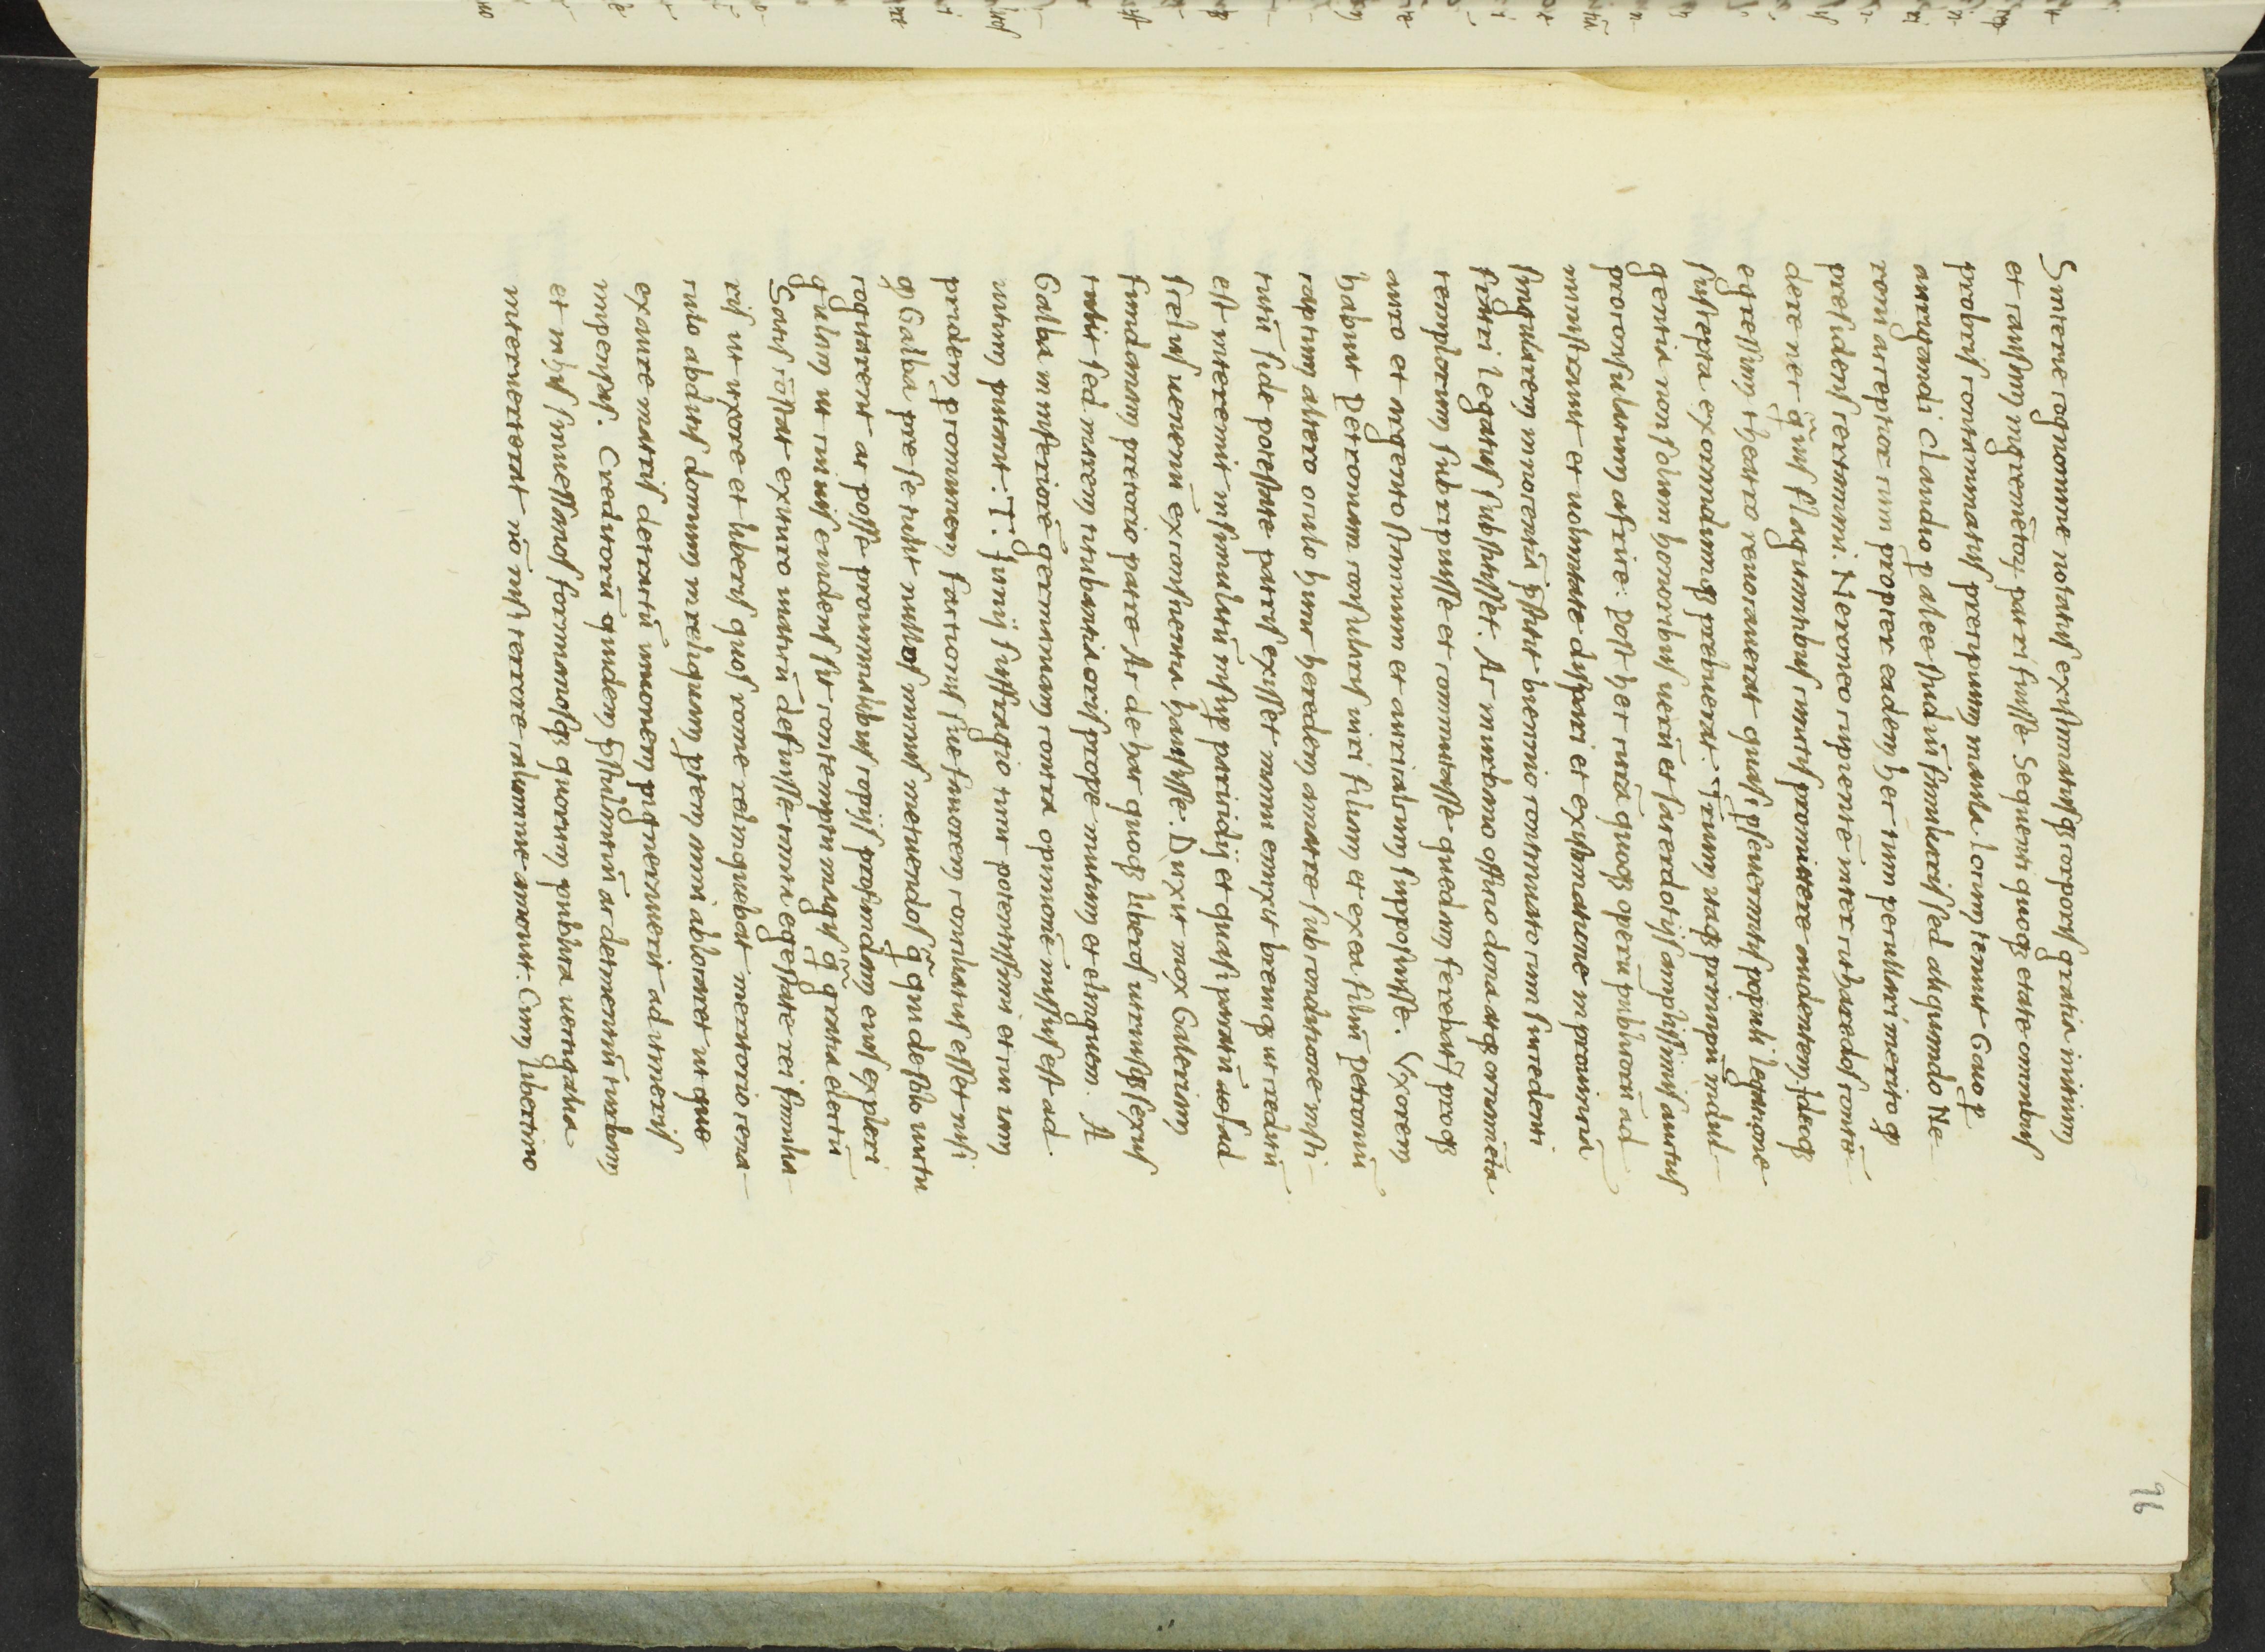 Sinterie cognomine notatus existimatusq corporis gratia initium
et causam incremētoꝝ patri fuisse Sequenti quoq etate omnibus
probris contaminatus precipuum in aula locum tenuit Gaio ꝑ
aurigandi Claudio ꝑ alee studiū familiaris sed aliquando Ne-
roni acceptior cum propter eadem hec tum peculiari merito q
presidens certamini Neroneo cupientē inter citharedos contē-
dere nec q̄uis flagitantibus cunctis promittere audentem Ideoq
egressum theatro reuocauerat quasi ꝑseuerantis populi legatione
suscepta exorandumq prebuerat. Trium itaq principū indul-
gentia non solum honoribus uerū et sacerdotijs amplissimis auctus
proconsulatum africe. Post hec curā quoq operū publicorū ad
ministrauit et uoluntate dispari et existimatione in prouincia
singularem innocentiā p̄stitit biennio continuato cum succedenti
fratri legatus substitisset. At in urbano officio dona atq ornamēta
templorum subripuisse et commutasse quedam ferebat̄ proq
auro et argento stannum et auricalcum supposuisse. Vxorem
habuit Petroniam consularis uiri filiam et ex ea filiū Petronianū
captum altero oculo hunc heredem a matre sub conditione insti-
tutū si de potestate patris exisset manu emisit breuiq ut creditū
est interemit insimulatū insuꝑ parricidij et quasi paratū ad
scelus uenenū ex conscientia hausisse. Duxit mox Galeriam
fundanam pretorio patre Ac de hac quoq liberos utriusq sexus
tulit sed marem titubantia oris prope mutum et elinguem. A
Galba in inferiorē germaniam contra opinionē missus est ad
iutum putant. T. Iunij suffragio tunc potentissimi et cui iam
pridem ꝑ comunem factionis sue fauorem conciliatus esset nisi
q Galba pre se tulit nullos minus metuendos q̄ qui de solo uictu
cogitarent ac posse prouincialibus copijs profundam eius expleri
gulam ut cuiuis euidens sit contemptu magis q̄ gratia electū
Satis cōstat exituro uiaticū defuisse tanta egestate rei familia-
ris ut uxore et liberis quos rome relinquebat meritorio cena-
culo abditis domum in reliquam ꝑtem anni ablocaret ut que
ex aure matris detractū unionem pigneauerit ad itineris
impensas. Creditorū quidem p̄stolantiū ac detinentiū turbam
et in hijs sinuessanos formianosq quorum publica uectigalia
interuerterat nō nisi terrore calumnie amouit. Cum libertino
96